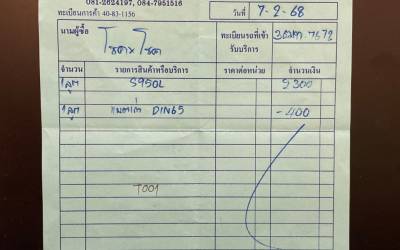 081-2624197, 084-7951516
ทะเบียนการค้า 40-83-1156
วันที่ 7-2-68
นามผู้ซื้อ โชคฯ โชค
ทะเบียนรถที่เข้ารับบริการ 7572
จำนวน รายการสินค้าหรือบริการ ราคาต่อหน่วย จำนวนเงิน
1 ลูก S95DL 2300
1 ลูก แบตเก่า DIN65 -400
T001